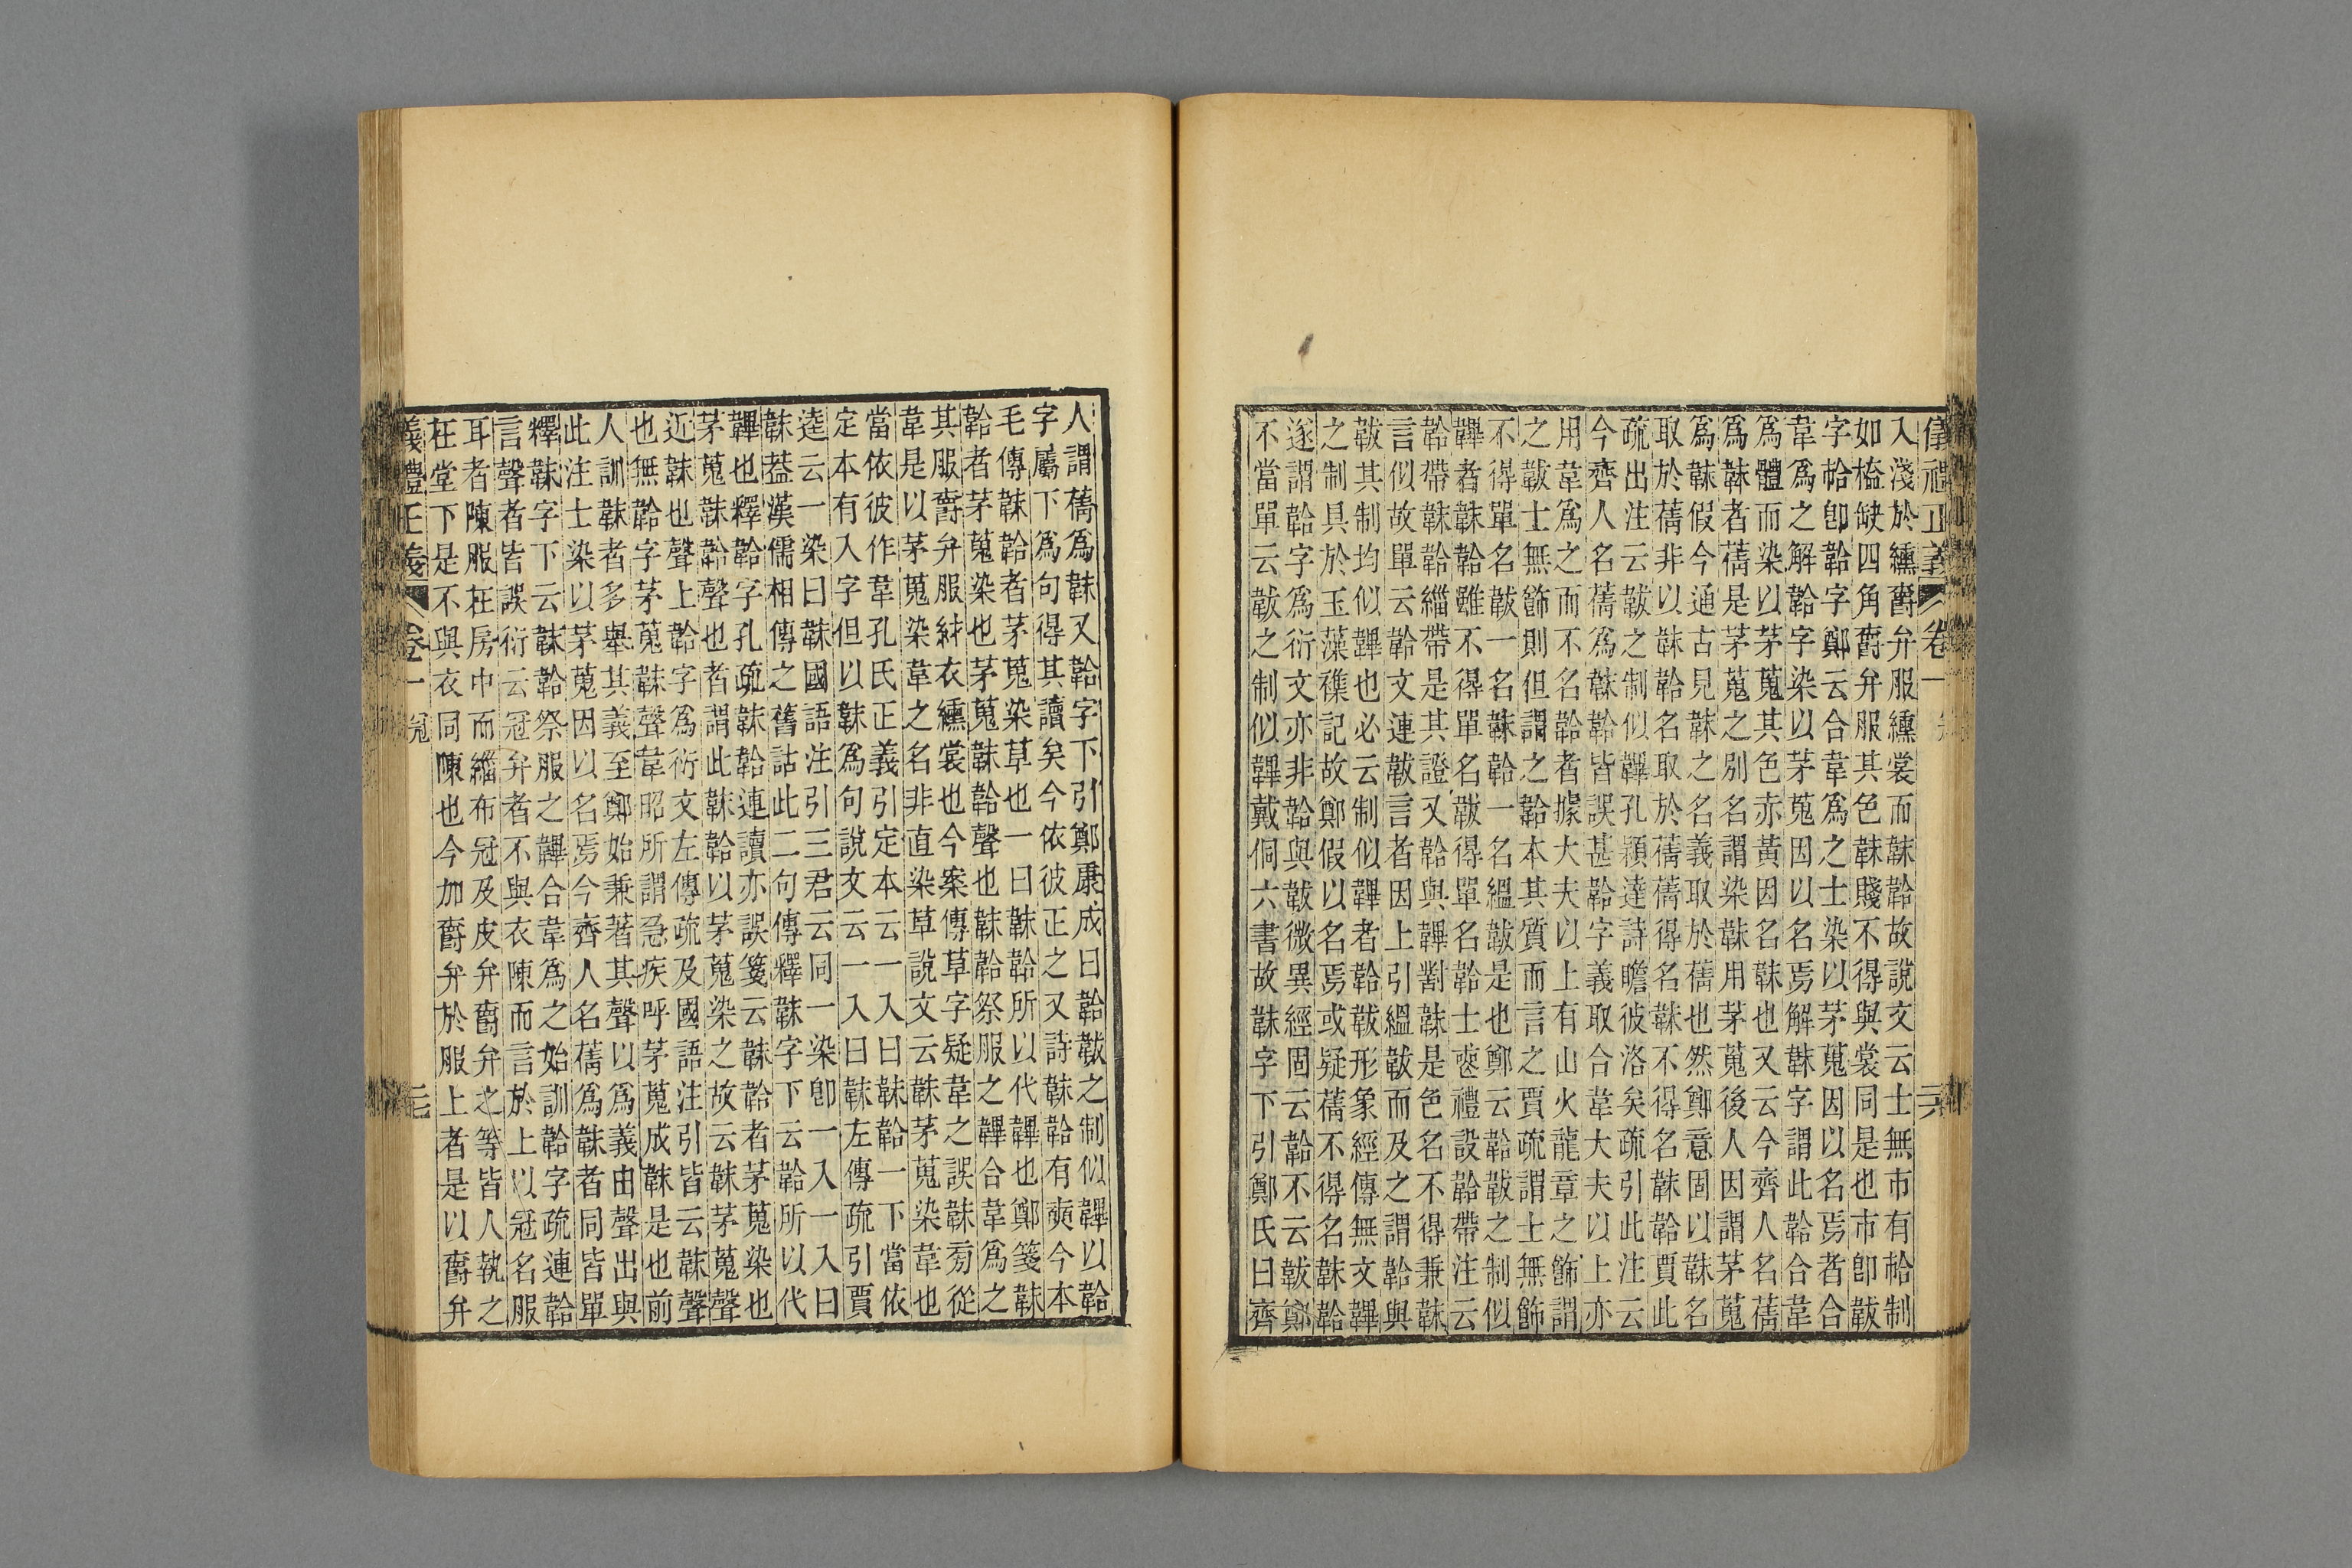 儀禮正義 卷一 冠 二六
入淺於纁爵弁服纁裳而韎韐故說文云士無市有帢制
如榼缺四角爵弁服其色韎賤不得與裳同是也市卽韍
字帢卽韐字鄭云合韋爲之士染以茅蒐因以名焉者合
韋爲之解韐字染以茅蒐因以名焉解韎字謂此韐合韋
爲體而染以茅蒐其色赤黃因名韎也又云今齊人名蒨
爲韎者蒨是茅蒐之別名謂染韎用茅蒐後人因謂茅蒐
爲韎假今通古見韎之名義取於蒨也然鄭意固以韎名
取於蒨非以韎韐名取於蒨蒨得名韎不得名韎韐賈此
疏出注云韍之制似韠孔穎達詩瞻彼洛矣疏引此注云
今齊人名蒨爲韎韐皆誤甚韐字義取合韋大夫以上亦
用韋爲之而不名韐者據大夫以上有山火龍章之飾謂
之韍士無飾則但謂之韐本其質而言之賈疏謂士無飾
不得單名韍一名韎韐一名縕韍是也鄭云韐韍之制似
韠者韎韐雖不得單名韍得單名韐士喪禮設韐帶注云
韐帶韎韐緇帶是其證又韐與韠劄韎是色名不得兼韎
言似故單云韐文連韍言者因上引縕韍而及之謂韐與
韍其制均似韠也必云制似韠者韐韍形象經傳無文韠
之制具於玉藻襍記故鄭假以名焉或疑蒨不得名韎韐
遂謂韐字爲衍文亦非韐與韍微異經固云韐不云韍鄭
不當單云韍之制似韠戴侗六書故韎字下引鄭氏曰齊
人謂蒨爲韎又韐字下引鄭康成曰韐韍之制似韠以韐
字屬下爲句得其讀矣今依彼正之又詩韎韐有奭今本
毛傳韎韐者茅蒐染草也一曰韎韐所以代韠也鄭箋韎
韐者茅蒐染也茅蒐韎韐聲也韎韐祭服之韠合韋爲之
其服爵弁服紂衣纁裳也今案傳草字疑韋之誤韎劄從
韋是以茅蒐染韋之名非直染草說文云韎茅蒐染韋也
當依彼作韋孔氏正義引定本云一入曰韎韐一下當依
定本有入字但以韎爲句說文云一入曰韎左傳疏引賈
逵云一染曰韎國語注引三君云同一染卽一入一入曰
韎葢漢儒相傳之舊詁此二句傳釋韎字下云韐所以代
韠也釋韐字孔疏韎韐連讀亦誤箋云韎韐者茅蒐染也
茅蒐韎韐聲也者謂此韎韐以茅蒐染之故云韎茅蒐聲
近韎也聲上韐字爲衍文左傳疏及國語注引皆云韎聲
也無韐字茅蒐韎聲韋昭所謂急疾呼茅蒐成韎是也前
人訓韎者多舉其義至鄭始兼著其聲以爲義由聲出與
此注士染以茅蒐因以名焉今齊人名蒨爲韎者同皆單
釋韎字下云韎韐祭服之韠合韋爲之始訓韐字疏連韐
言聲者皆誤衍云冠弁者不與衣陳而言於上以冠名服
耳者陳服在房中而緇布冠及皮弁爵弁之等皆人執之
在堂下是不與衣同陳也今加爵弁於服上者是以爵弁
義禮正義 卷一 冠 二七